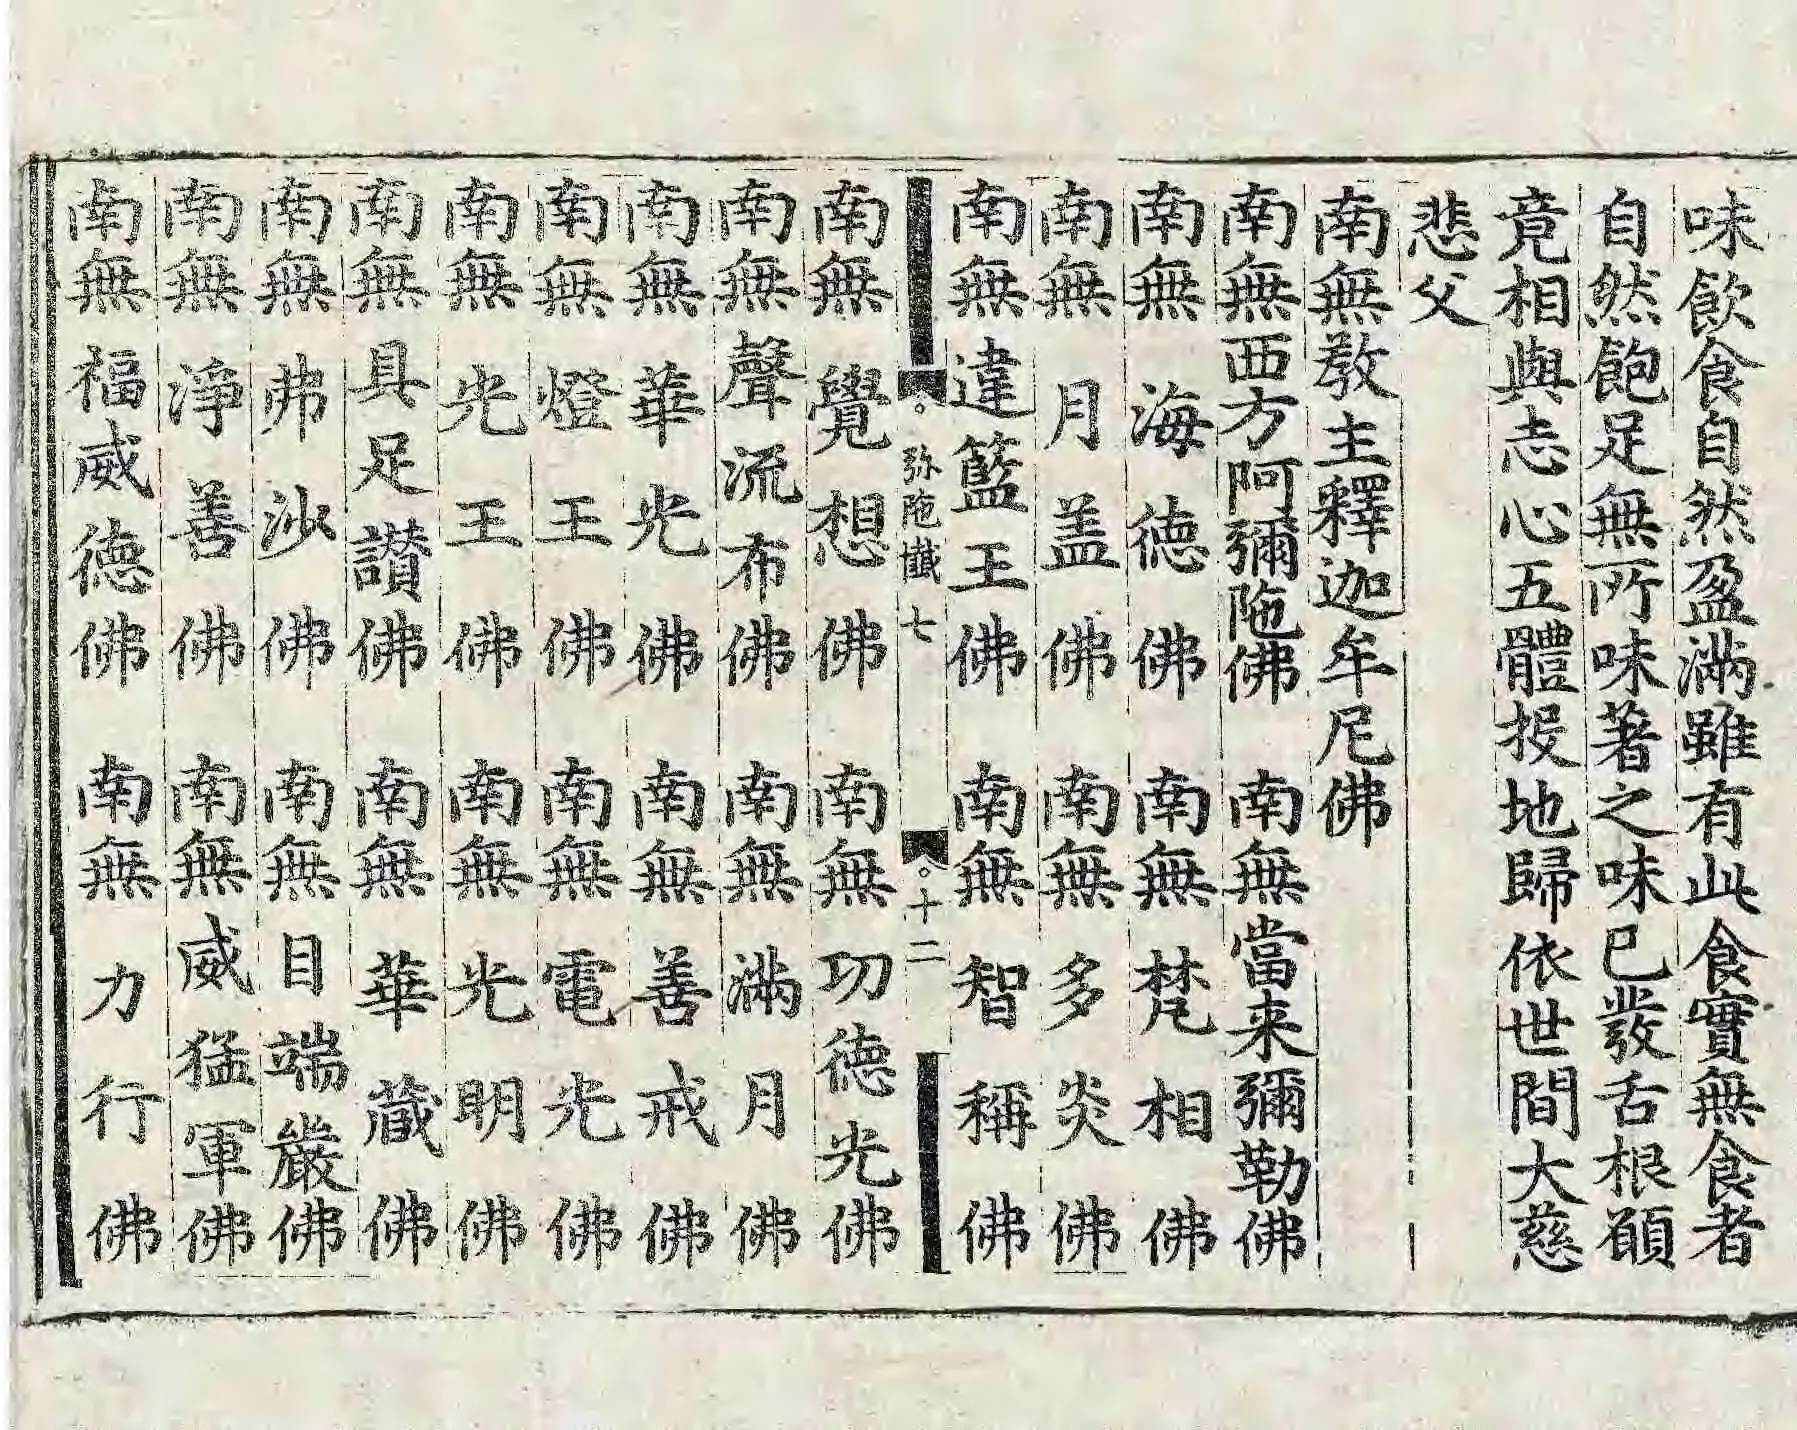 味飲食自然盈滿雖有此食實無食者
自然飽足無所味著之味已發舌根願
竟相與志心五體投地歸依世間大慈
悲父
南無教主釋迦牟尼佛
南無西方阿彌陁佛　南無當来彌勒佛
南無海德佛　南無梵相佛
南無月盖佛　南無多炎佛
南無違籃王佛　南無智稱佛
弥陁懴七　十二
南無覺想佛　南無功德光佛
南無聲流布佛　南無滿月佛
南無華光佛　南無善戒佛
南無燈王佛　南無電光佛
南無光王佛　南無光明佛
南無具足讃佛　南無華蔵佛
南無弗沙佛　南無目端嚴佛
南無淨善佛　南無威猛軍佛
南無福威德佛　南無力行佛